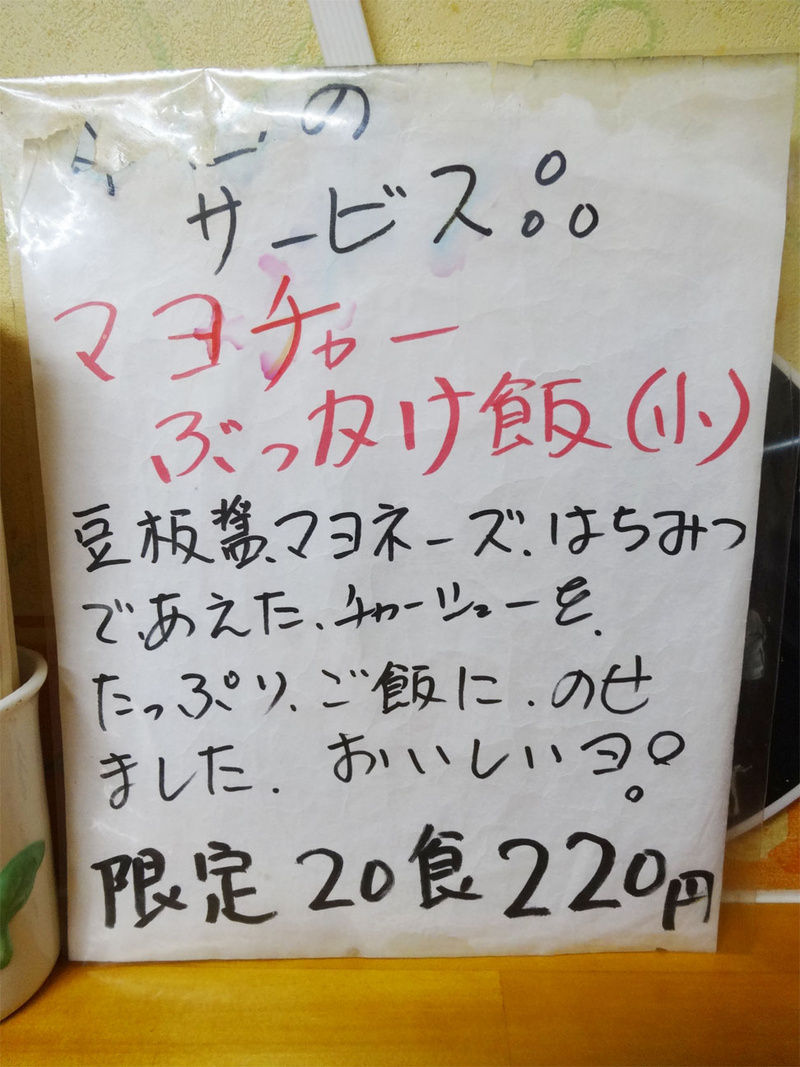 の
サービス
マヨチャー
ぶっかけ飯(小)
豆板醤、マヨネーズ、はちみつ
で、あえた、チャーシューを、
たっぷり、ご飯に、のせ
ました、おいしいヨ!
限定20食220円